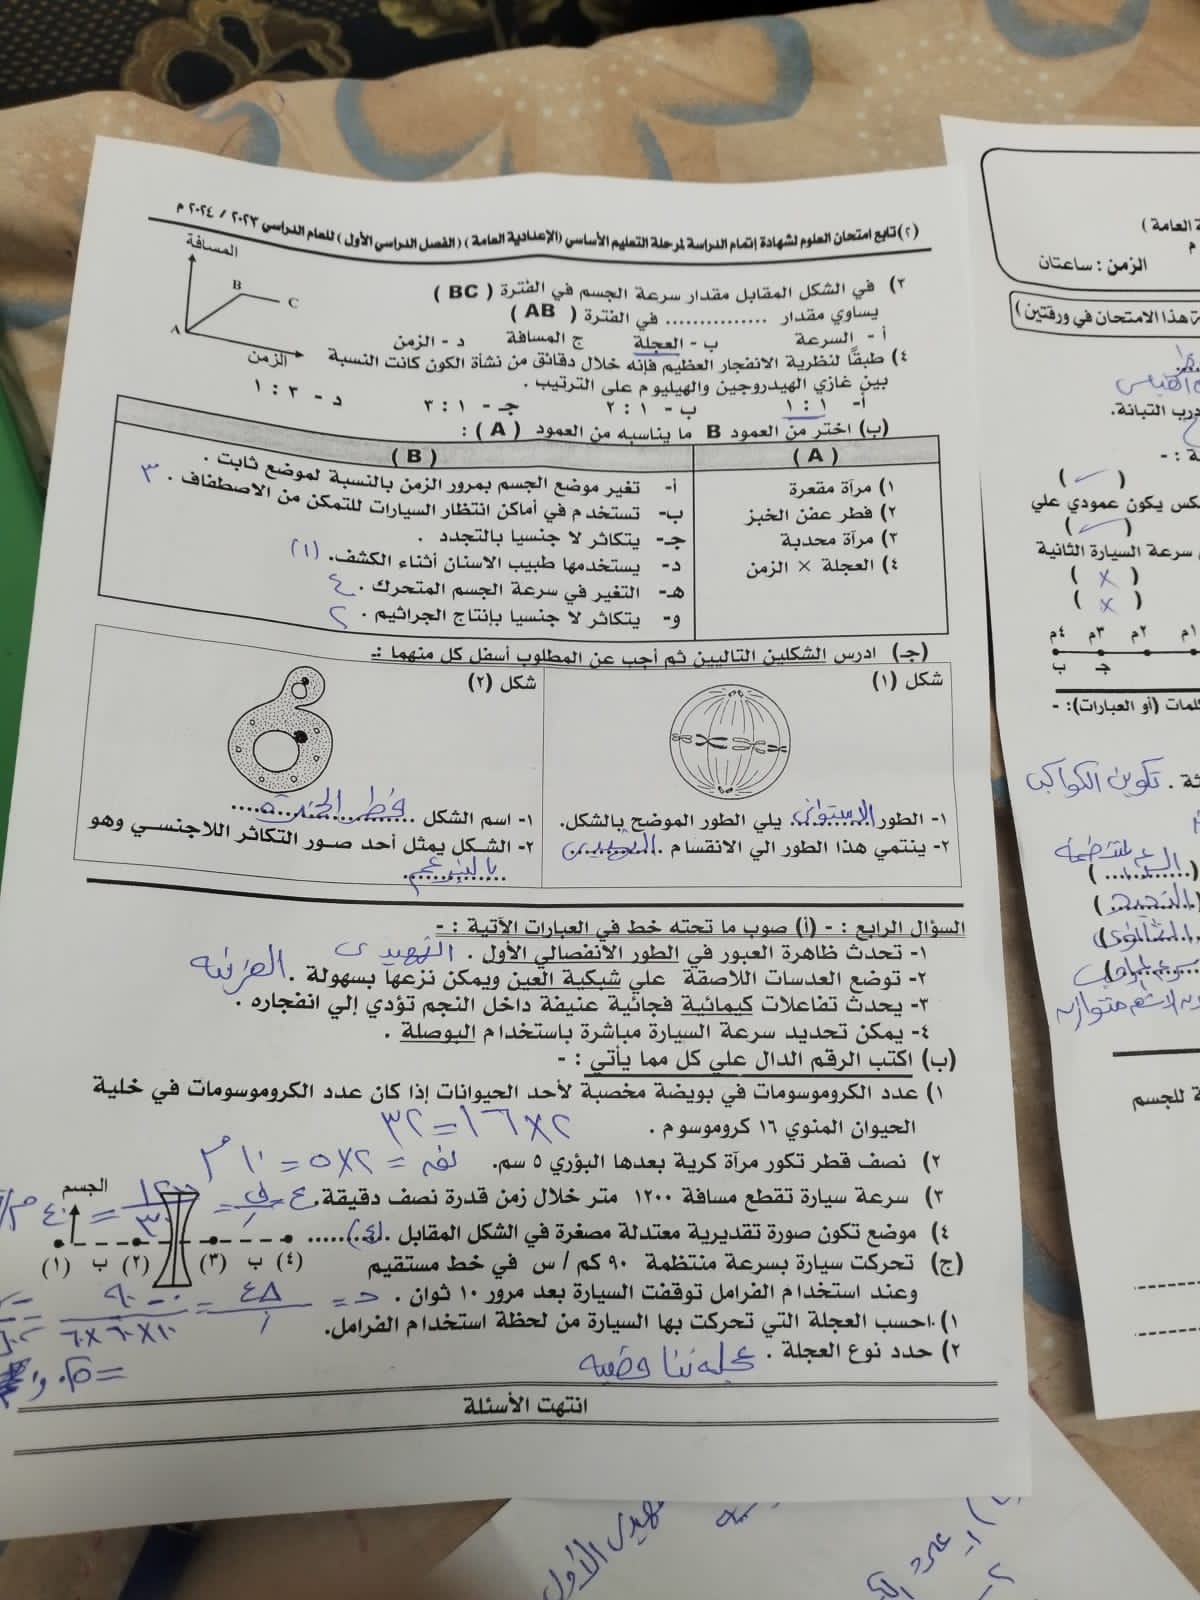 (٢) تابع امتحان العلوم لشهادة إتمام الدراسة لمرحلة التعليم الأساسي (الإعدادية العامة) (الفصل الدراسي الأول) للعام الدراسي ٢٠٢٣ / ٢٠٢٤ م
٣) في الشكل المقابل مقدار سرعة الجسم في الفترة ( BC )
يساوي مقدار ............... في الفترة ( AB )
أ - السرعة ب - العجلة ج المسافة د - الزمن
المسافة
B
C
A
الزمن
٤) طبقًا لنظرية الانفجار العظيم فإنه خلال دقائق من نشأة الكون كانت النسبة
بين غازي الهيدروجين والهيليوم على الترتيب .
أ- ١ : ١ ب - ١ : ٢ جـ - ١ : ٣ د - ٣ : ١
(ب) اختر من العمود B ما يناسبه من العمود ( A ) :
( A ) ( B )
١) مرآة مقعرة
٢) فطر عفن الخبز
٣) مرآة محدبة
٤) العجلة × الزمن
أ- تغير موضع الجسم بمرور الزمن بالنسبة لموضع ثابت .
ب- تستخدم في أماكن انتظار السيارات للتمكن من الاصطفاف . ٣
جـ- يتكاثر لا جنسيا بالتجدد .
د- يستخدمها طبيب الاسنان أثناء الكشف. (١)
هـ- التغير في سرعة الجسم المتحرك . ٤
و- يتكاثر لا جنسيا بإنتاج الجراثيم . ٢
(جـ) ادرس الشكلين التاليين ثم أجب عن المطلوب أسفل كل منهما :-
شكل (١)
١- الطور الاستوائى يلي الطور الموضح بالشكل.
٢- ينتمي هذا الطور الي الانقسام ..........
شكل (٢)
١- اسم الشكل فطر الخميرة
٢- الشكل يمثل أحد صور التكاثر اللاجنسي وهو
بالتبرعم
السؤال الرابع : - (أ) صوب ما تحته خط في العبارات الآتية : -
١- تحدث ظاهرة العبور في الطور الانفصالي الأول . التمهيدى
٢- توضع العدسات اللاصقة علي شبكية العين ويمكن نزعها بسهولة . القرنية
٣- يحدث تفاعلات كيمائية فجائية عنيفة داخل النجم تؤدي إلي انفجاره .
٤- يمكن تحديد سرعة السيارة مباشرة باستخدام البوصلة .
(ب) اكتب الرقم الدال علي كل مما يأتي : -
١) عدد الكروموسومات في بويضة مخصبة لأحد الحيوانات إذا كان عدد الكروموسومات في خلية
الحيوان المنوي ١٦ كروموسوم . ٢×١٦=٣٢
٢) نصف قطر تكور مرآة كرية بعدها البؤري ٥ سم. نق = ٢×٥ = ١٠ سم
٣) سرعة سيارة تقطع مسافة ١٢٠٠ متر خلال زمن قدرة نصف دقيقة. ع = ف/ز = ١٢٠٠/٣٠ = ٤٠ م/
٤) موضع تكون صورة تقديرية معتدلة مصغرة في الشكل المقابل .(٤)..........
الجسم
(١) ب (٢) (٣) ب (٤)
(ج) تحركت سيارة بسرعة منتظمة ٩٠ كم / س في خط مستقيم
وعند استخدام الفرامل توقفت السيارة بعد مرور ١٠ ثوان .
١) احسب العجلة التي تحركت بها السيارة من لحظة استخدام الفرامل.
٢) حدد نوع العجلة . عجلة تناقصية
انتهت الأسئلة
ة العامة )
م
الزمن : ساعتان
ة هذا الامتحان في ورقتين )
درب التبانة.
ة : -
كس يكون عمودي علي
سرعة السيارة الثانية
( × )
( × )
١م ٢م ٣م ٤م
جـ ب
كلمات (أو العبارات): -
ثة . تكوين الكواكب
ة للجسم